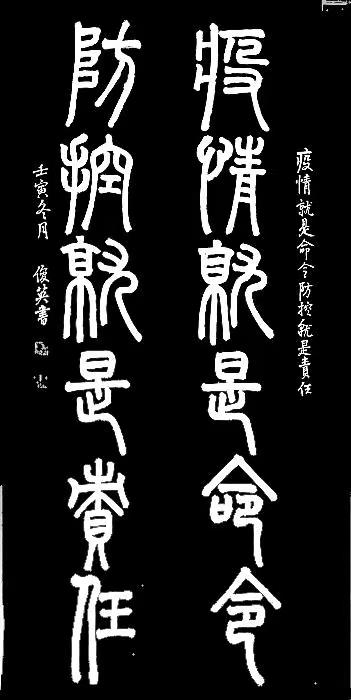 疫情就是命令防控就是責任
疫情就是命令
防控就是責任
壬寅冬月 俊英書